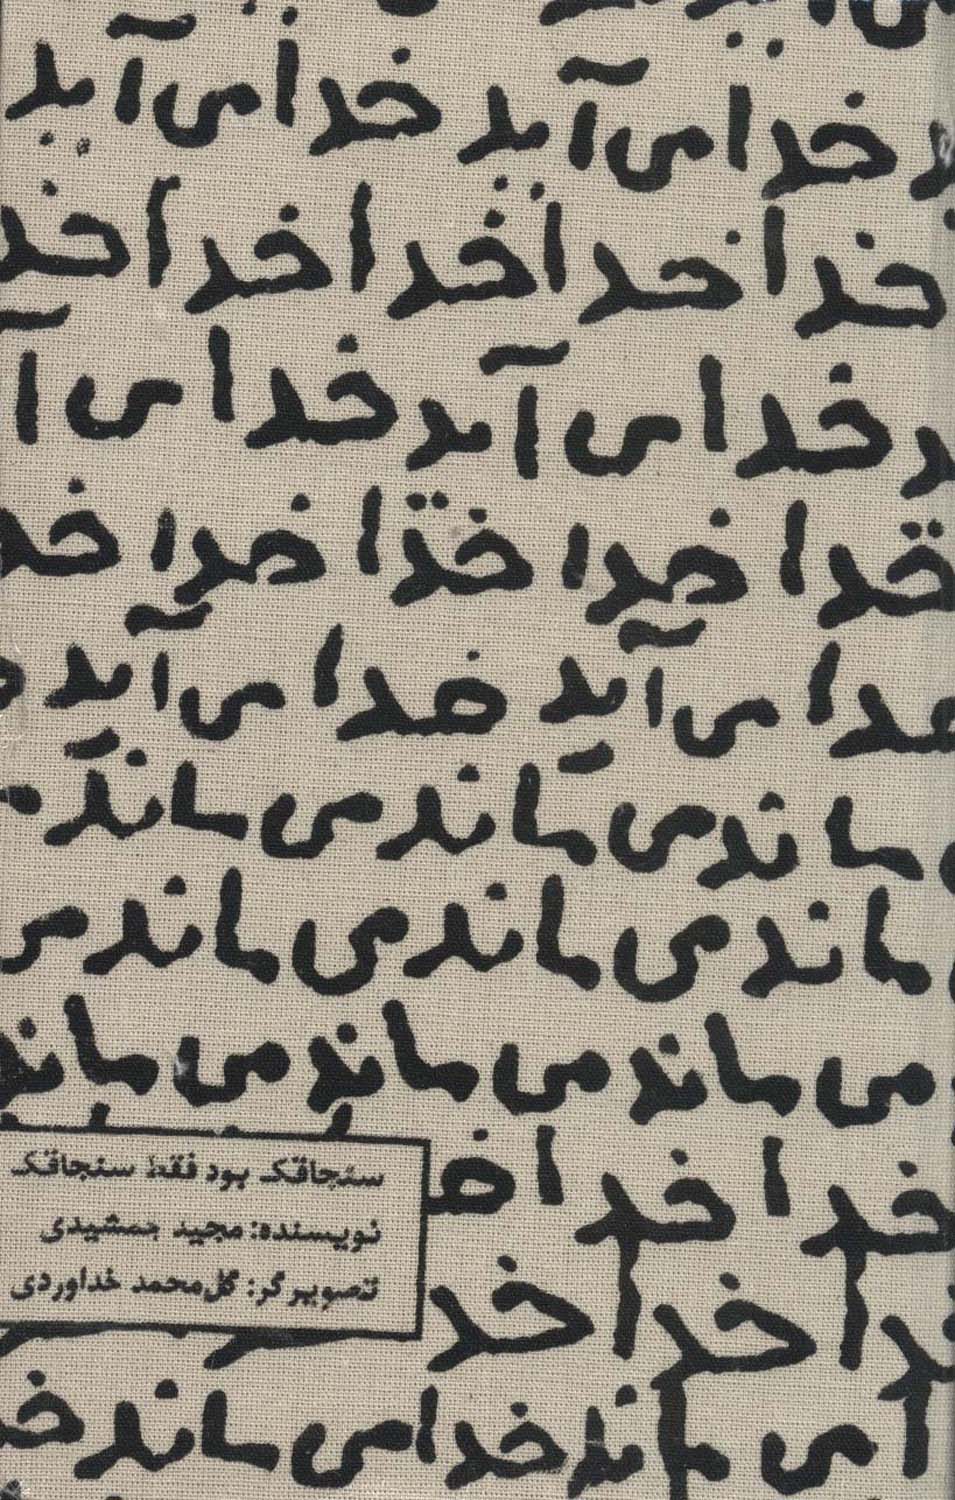 خدا می‌آید خدا می‌آید
خدا خدا خدا خدا خد
خدا می‌آید خدا می آ
خدا خدا خدا خدا خد
خدا می‌آید خدا می‌آید
ساند می ساند می ساند
ماند می ماند می ماند می
می ساند می ساند می ساند
خدا خدا
سنجاقک بود فقط سنجاقک
نویسنده: مجید جمشیدی
تصویرگر: گل‌محمد خداوردی
خدا خدا
می ماند خدا می ساند خد